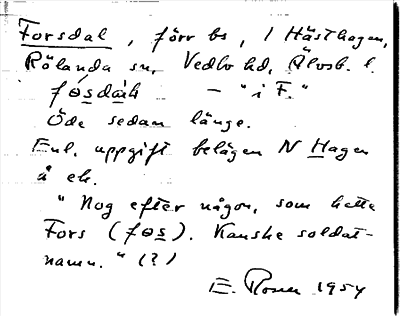 Forsdal, förr bs, / Hästhagen,
Rölanda sn, Vedbo hd, Älvsb. l.
fɵs̲dàh – "i F."
Öde sedan länge.
Enl. uppgift belägen N Hagen
å ek.
"Nog efter någon, som hette
Fors (fɵs̲). Kanske soldat-
namn." (?)
E. Rosen 1954